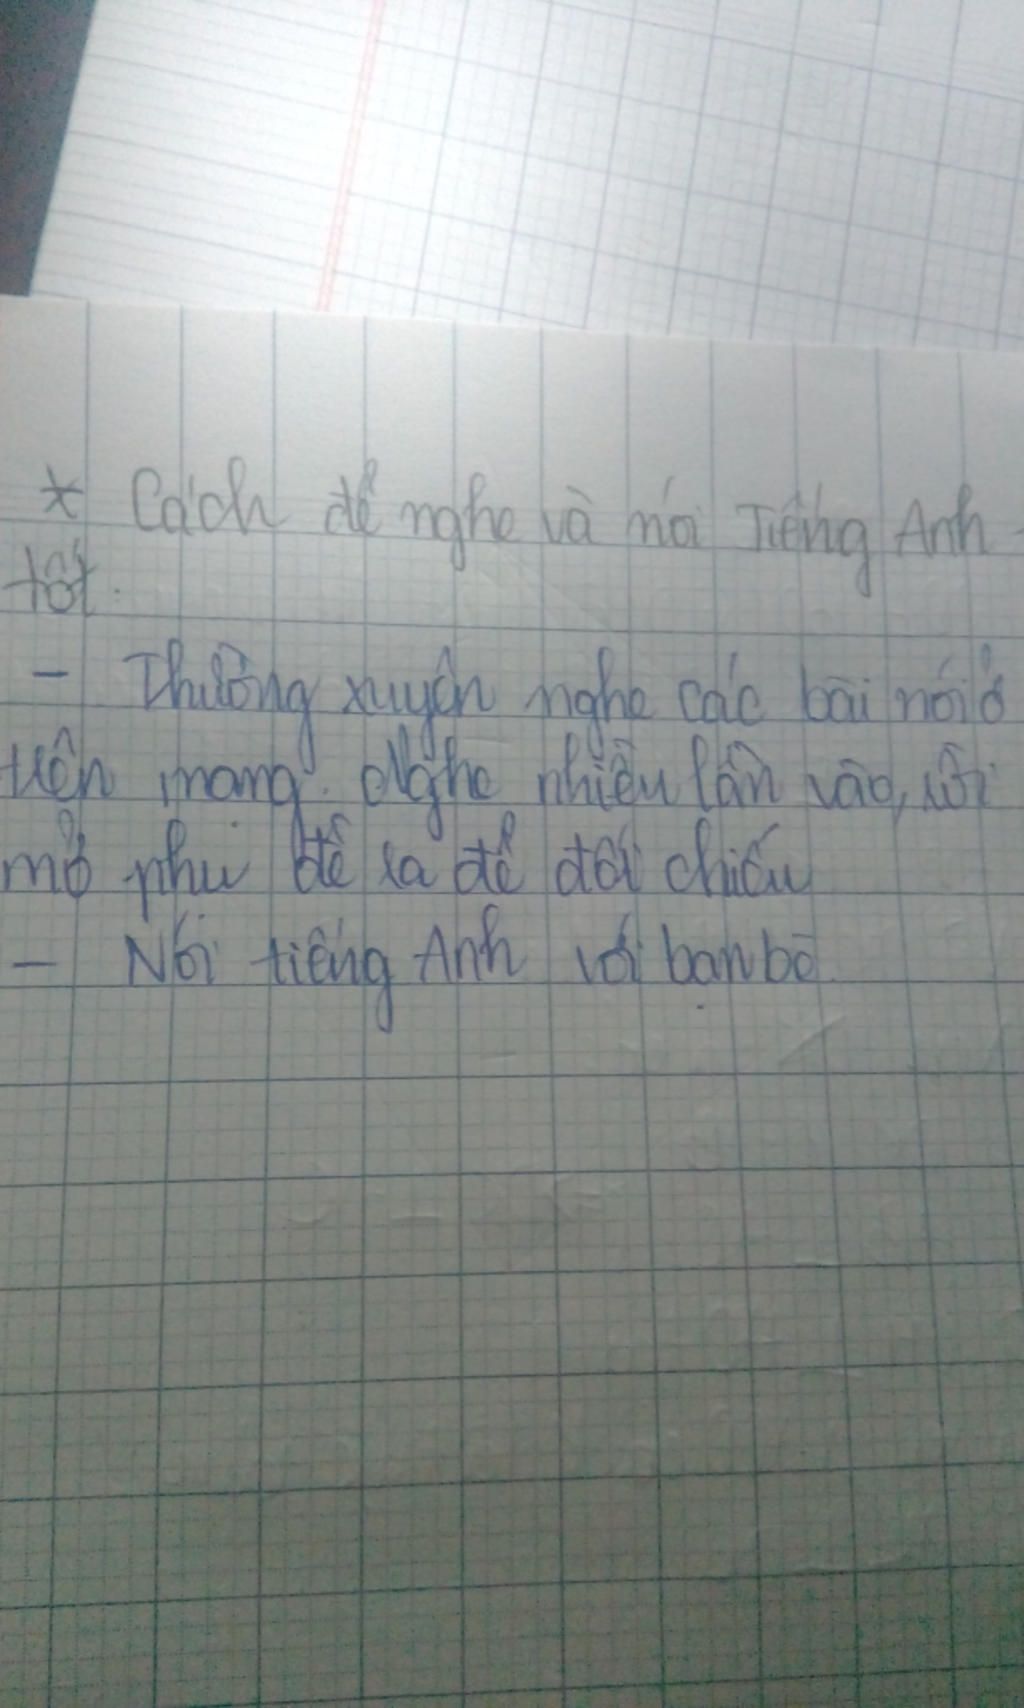 * Cách để nghe và nói Tiếng Anh
tốt.
- Thường xuyên nghe các bài nói ở
trên mạng. Nghe nhiều lần vào, rồi
mở phụ đề ra để đối chiếu
- Nói tiếng Anh với bạn bè